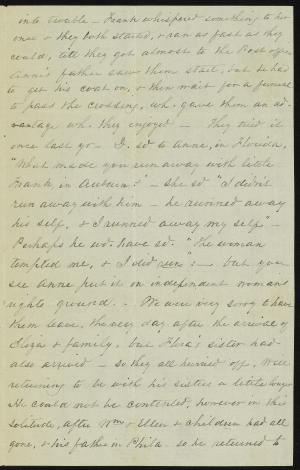 into trouble - Frank whispered something to her
once & they both started, & ran as fast as they
could, till they got almost to the Post office
Annie's father saw them start, but he had
to get his coat on, & then wait for a funeral
to pass the crossing, wh. gave them an ad-
vantage wh. they enjoyed - They tried it
once last yr - I sd to Anne, in Florida,
"What made you run away with little
Frank, in Auburn?" - She sd "I didn't
run away with him - he runned away
his self, & I runned away my self" -
Perhaps he wd. have sd. "The woman
tempted me, & I did run": - but you
see Anne put it on independent woman's
rights ground. - We were very sorry to have
them leave, the very day after the arrival of
Eliza & family, but Flora's sister had
also arrived - so they all hurried off, Will
returning to be with his sisters a little longer
He could not be contented, however in this
solitude, after Wm & Ellen & children had all
gone, & his father in Phila - so he returned to